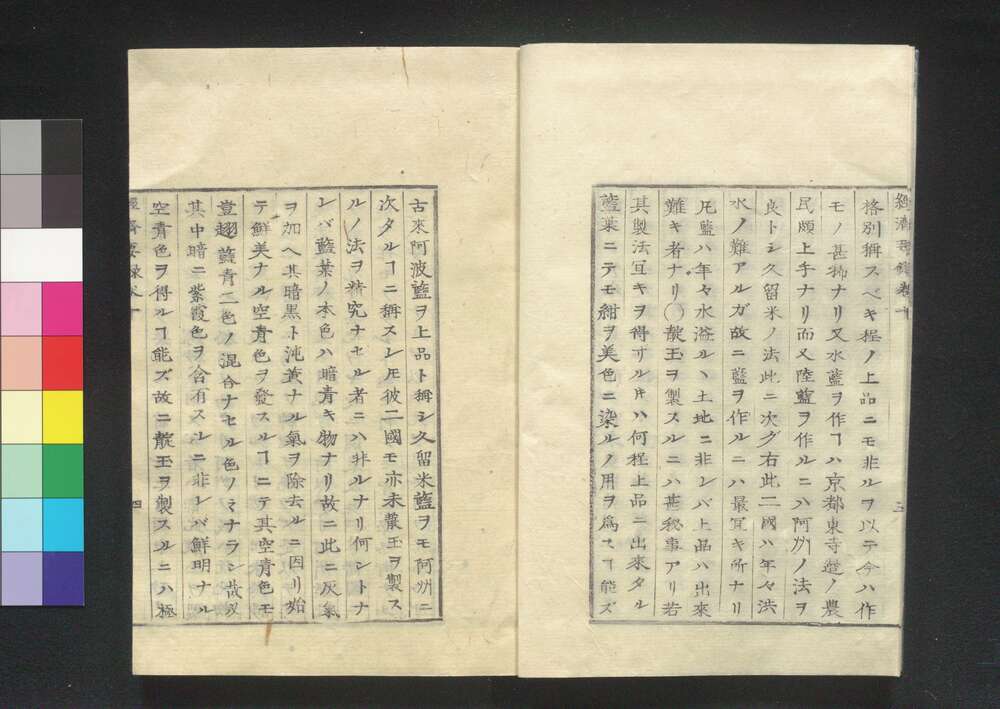 經濟要録卷十
格別稱スベキ程ノ上品ニモ非ルヲ以テ今ハ作
モノ甚稀ナリ又水藍ヲ作ヿハ京都東寺邊ノ農
民頗上手ナリ而又陸藍ヲ作ルニハ阿州ノ法ヲ
良トシ久留米ノ法此ニ次グ右此二國ハ年々洪
水ノ難アルガ故ニ藍ヲ作ルニハ最冝キ所ナリ
凡藍ハ年々水溢ルヽ土地ニ非レバ上品ハ出來
難キ者ナリ〇靛玉ヲ製スルニハ甚秘事アリ若
其製法冝キヲ得ザル片ハ何程上品ニ出來タル
藍葉ニテモ紺ヲ美色ニ染ルノ用ヲ爲ヿ能ズ
三
古來阿波藍ヲ上品ト稱シ久留米藍ヲモ阿州ニ
次タルヿニ稱スレ𪜈彼二國モ亦未靛玉ヲ製ス
ルノ法ヲ精究ナセル者ニハ非ルナリ何ントナ
レバ藍葉ノ本色ハ暗青キ物ナリ故ニ此ニ灰氣
ヲ加ヘ其暗黒ト沌黄ナル氣ヲ除去ルニ因リ始
テ鮮美ナル空青色ヲ發スルヿニテ其空青色モ
豈翅藍青二色ノ混合ナセル色ノミナラン哉又
其中暗ニ紫霞色ヲ含有スルニ非レバ鮮明ナル
空青色ヲ得ルヿ能ズ故ニ靛玉ヲ製スルニハ極
經濟要録卷十
四